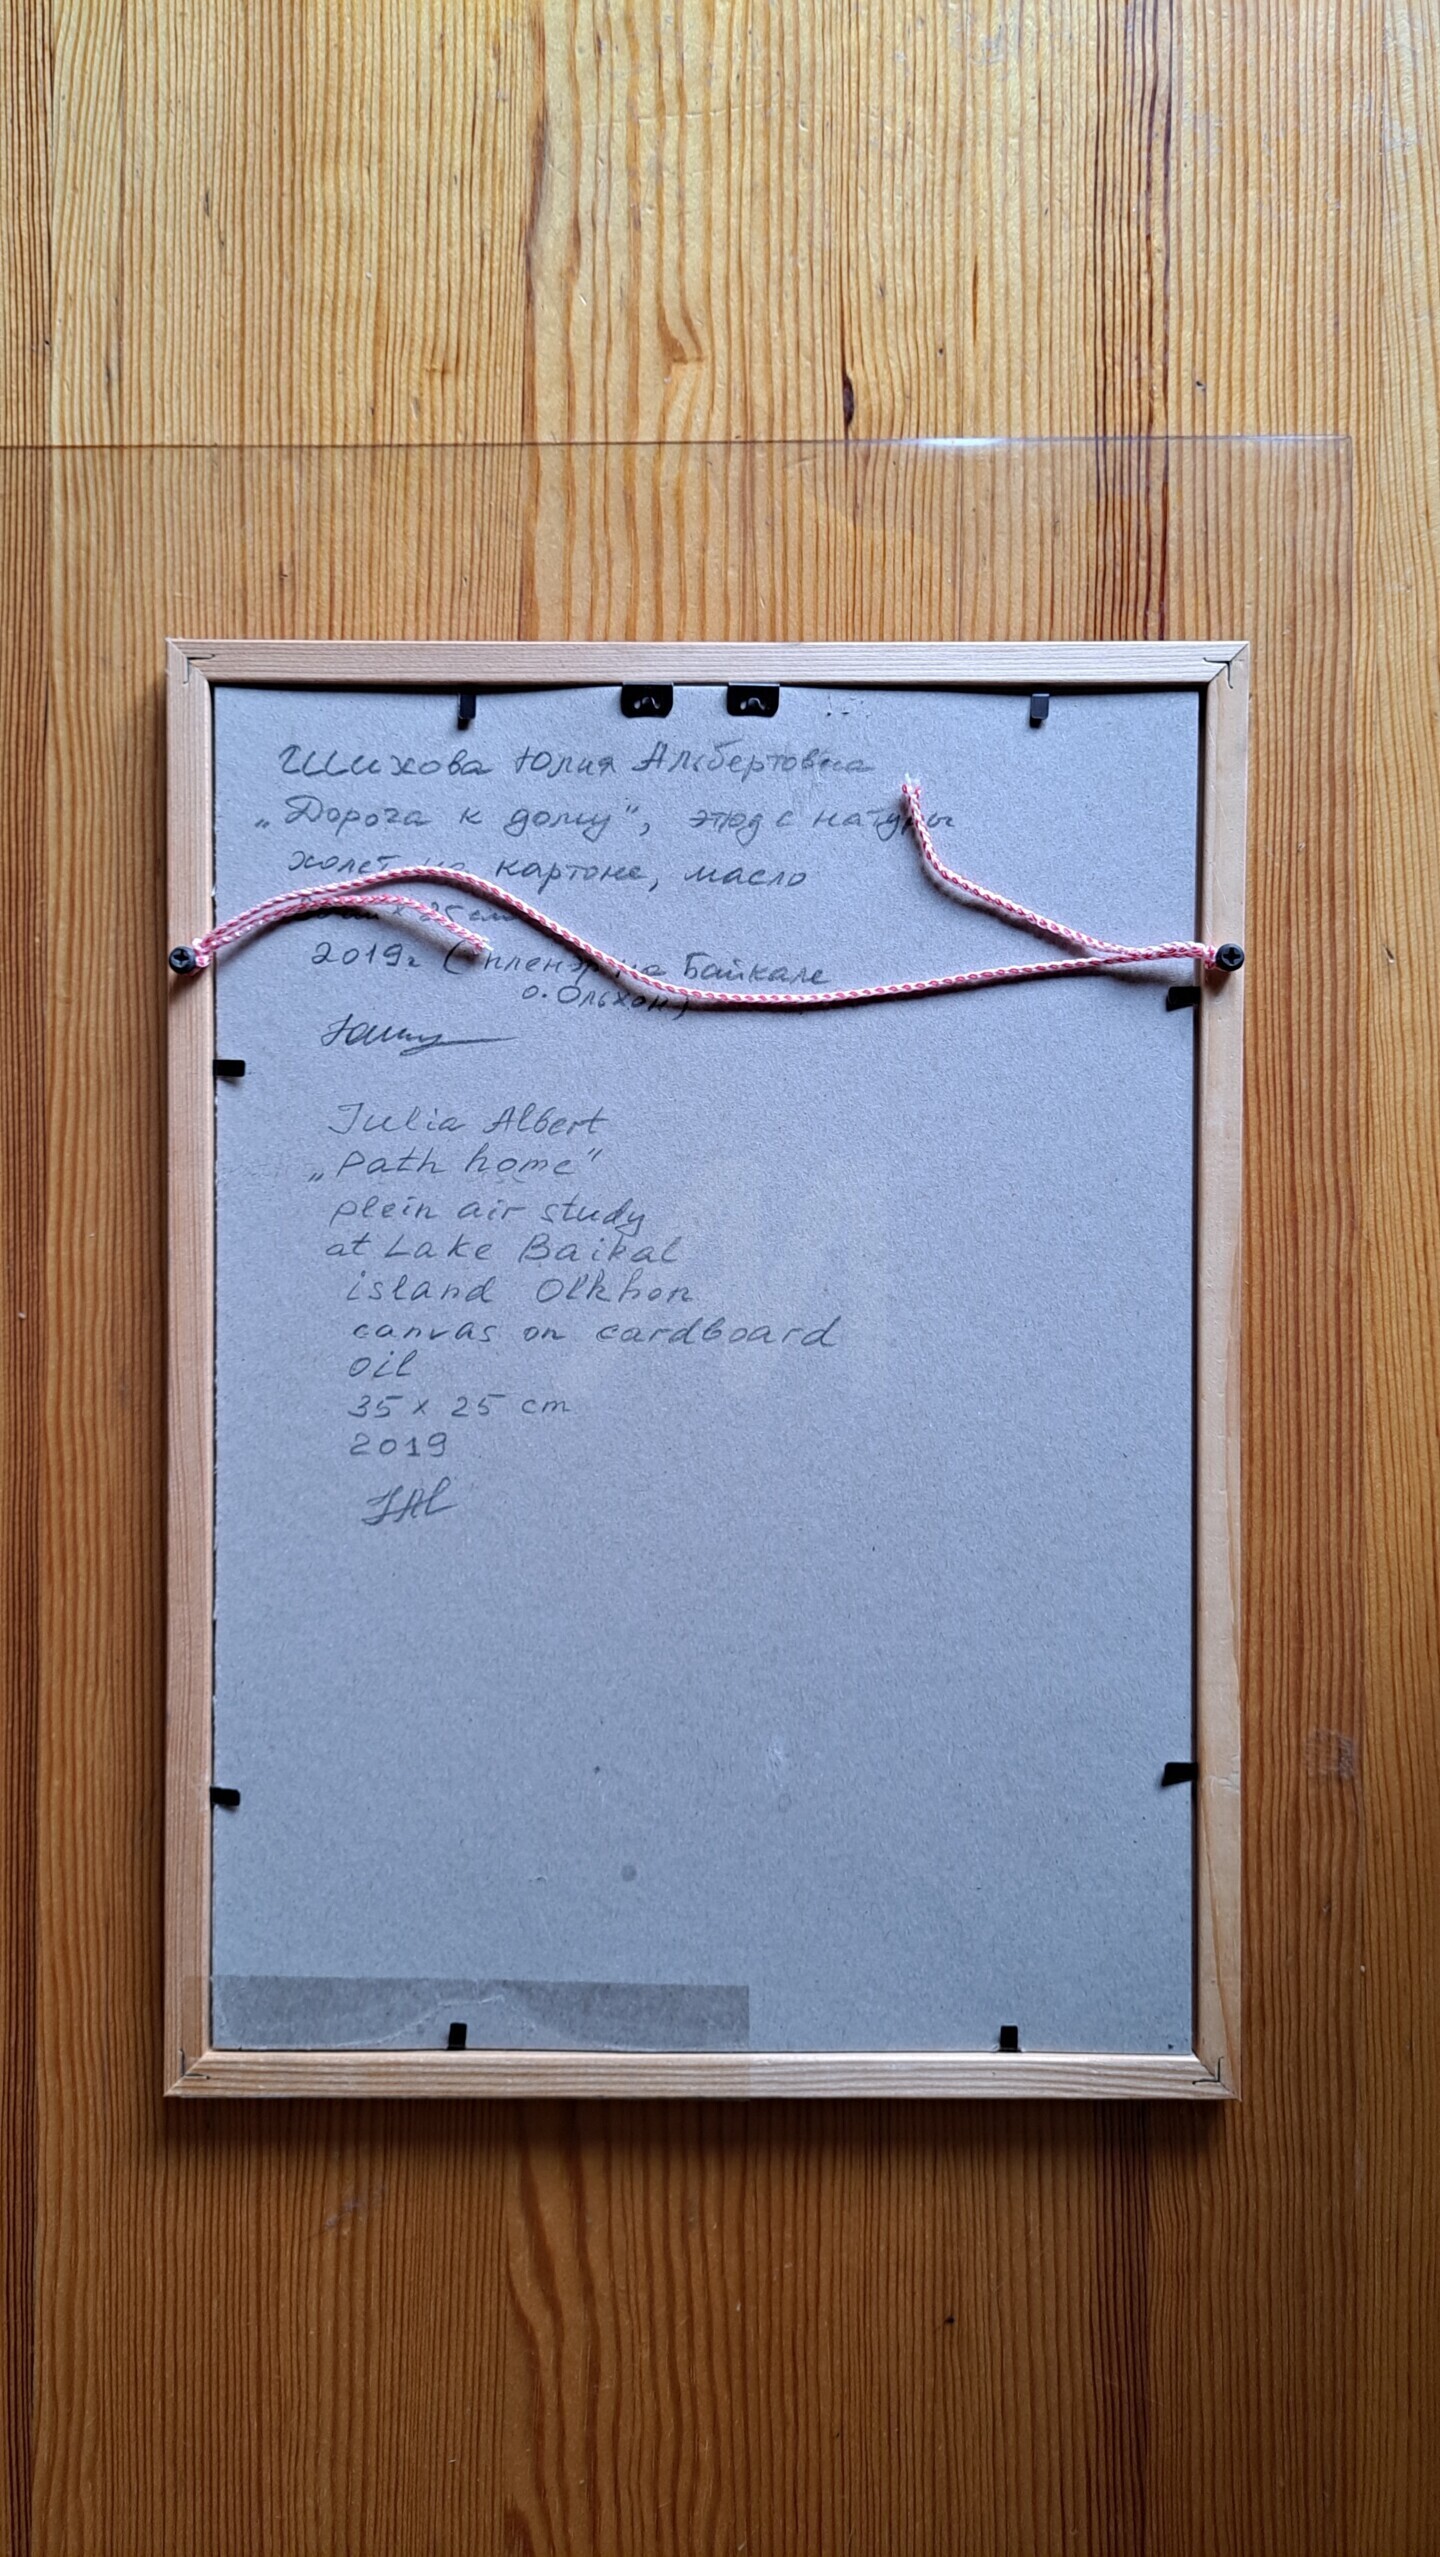 Шихова Юлия Альбертовна
„Дорога к дому", этюд с натуры
холст на картоне, масло
x 25 см
2019г (пленэр на Байкале
о. Ольхон)
Julia Albert
„Path home"
plein air study
at Lake Baikal
island Olkhon
canvas on cardboard
oil
35 x 25 cm
2019
JAl